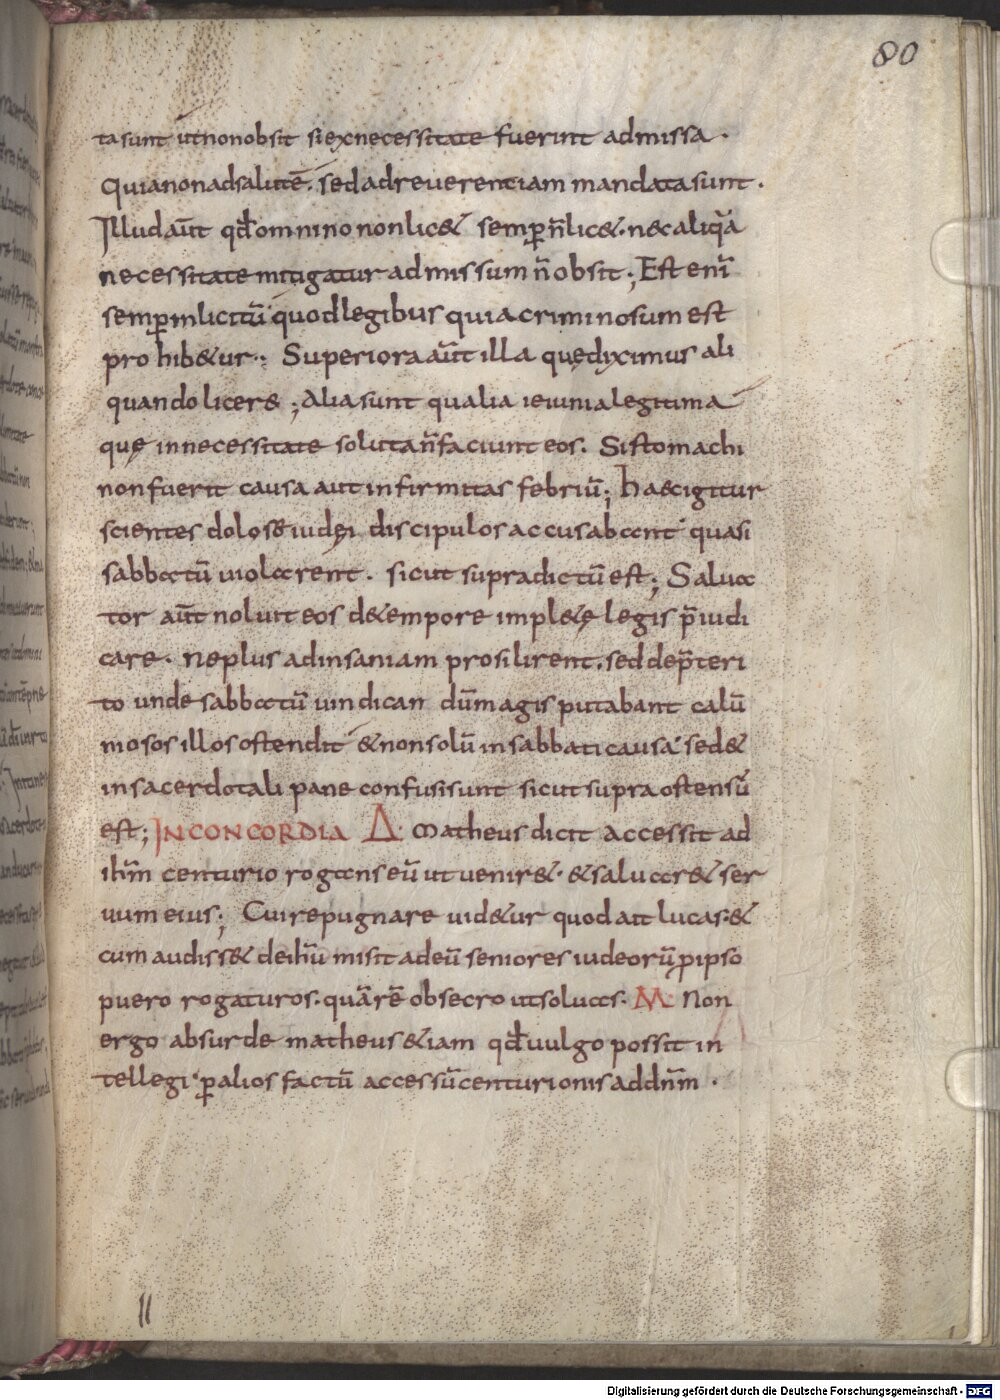 80
ta sunt ut non obsit si ex necessitate fuerint admissa ·
Quia non ad salutē. sed ad reuerentiam mandata sunt ·
Illud aūt qđ omnino non lic& semp n̄ lic&· n&c aliqua
necessitate mitigatur admissum n̄ obsit ; Est enī
semp inlicitū quod legibus quia criminosum est
prohib&ur ·; Superiora aūt illa quę diximus ali
quando licere ; Alia sunt qualia ieiunia legitima
quę in necessitate soluta n̄ faciunt eos. Si stomachi
non fuerit causa aut infirmitas febriū ; haec igitur
scientes dolosę iudęi discipulos accusabant quasi
sabbatū uiolarent · sicut supra dictū est ; Salua
tor aūt noluit eos d& empore impl&ę legis p̄iudi
care · Ne plus ad insaniam prosilirent. sed de p̄teri
to unde sabbatū uindican dūm agis putabant calū
niosos illos ostendit & non solū in sabbati causa sed &
in sacerdotali pane confusi sunt sicut supra ostensū
est ; IN CONCORDIA Δ· Matheus dicit accessit ad
ihm̄ centurio rogans eū ut uenir&· & saluar& ser
uum eius ; Cui repugnare uid&ur quod ait lucas·&
cum audiss& de ihū misit ad eū seniores iudeorū p ipso
puero rogaturos · quārē obsecro ut soluas · M· Non
ergo absurde matheus &iam qđ uulgo possit in
tellegi p alios factū accessū centurionis ad dnm̄ ·
II
Digitalisierung gefördert durch die Deutsche Forschungsgemeinschaft - DFG